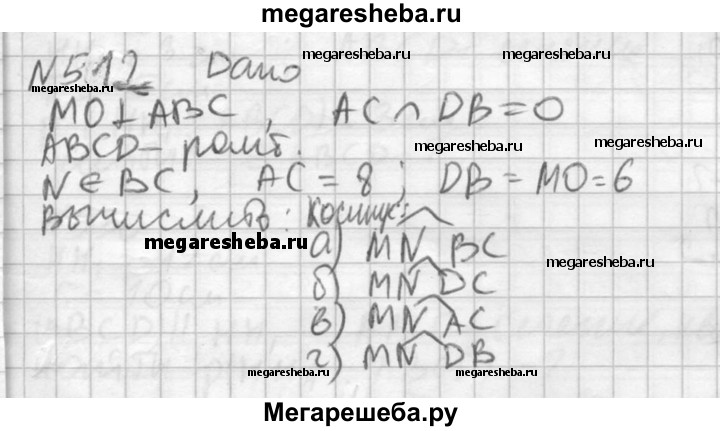 megaresheba.ru
N 512 Дано megaresheba.ru
megaresheba.ru
MO⊥ABC, AC∩DB=O
ABCD – ромб. megaresheba.ru megaresheba.ru
N∈BC, AC=8; DB=MO=6
вычислить: косинус:
megaresheba.ru а) MN BC
megaresheba.ru
б) MN DC
в) MN AC
г) MN DB
megaresheba.ru megaresheba.ru
Мегарешеба.ру